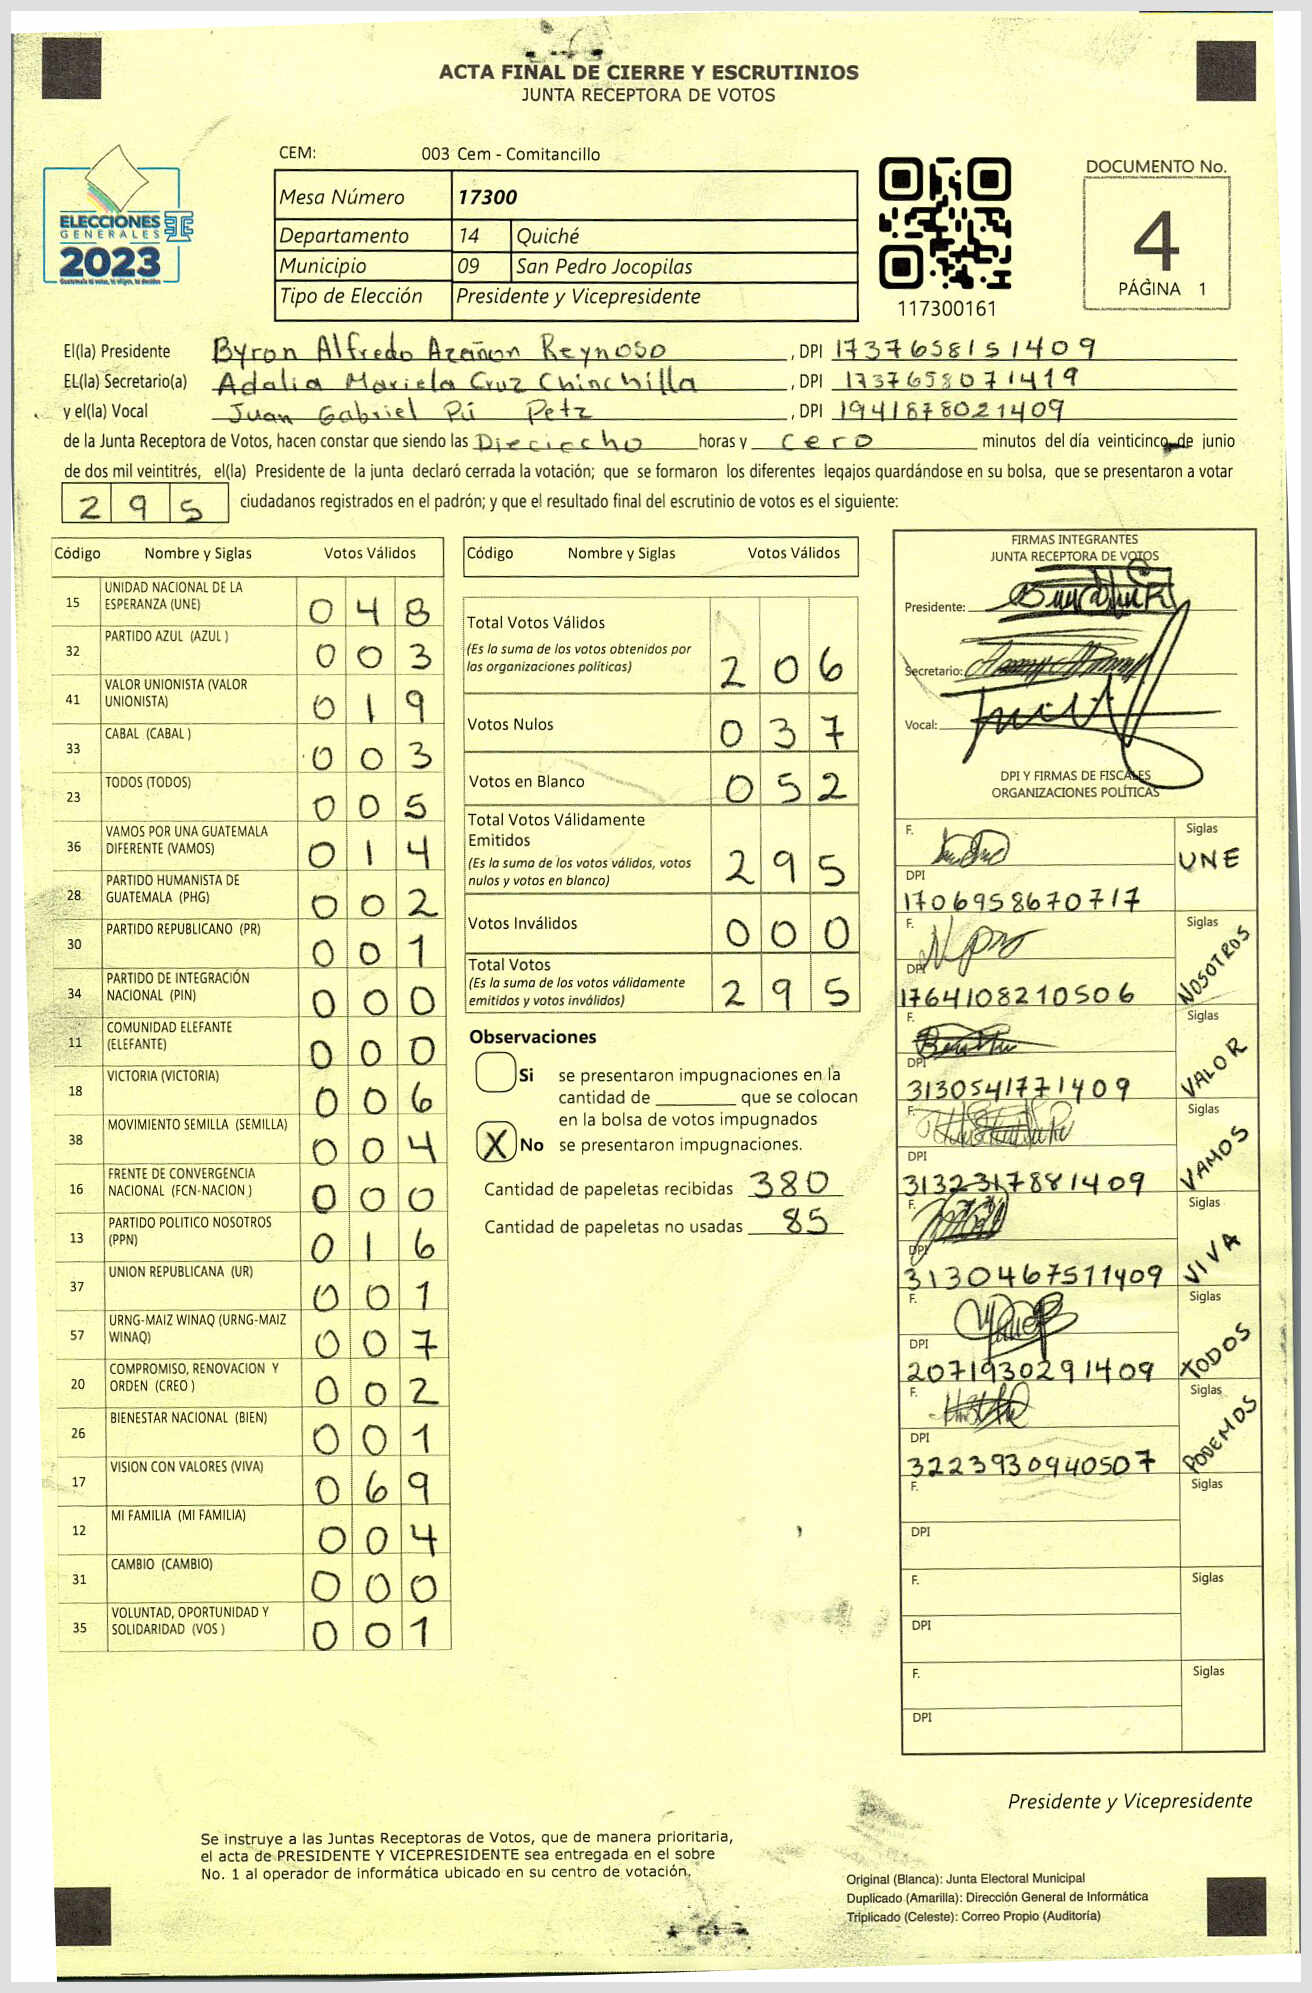 ACTA FINAL DE CIERRE Y ESCRUTINIOS
JUNTA RECEPTORA DE VOTOS
CEM: 003 Cem - Comitancillo
ELECCIONES
GENERALES
2023
Mesa Número 17300
Departamento 14 Quiché
Municipio 09 San Pedro Jocopilas
Tipo de Elección Presidente y Vicepresidente
117300161
DOCUMENTO No.
4
PÁGINA 1
El(la) Presidente Byron Alfredo Azañon Reynoso, DPI 1737658151409
EL(la) Secretario(a) Adalia Mariela Cruz Chinchilla, DPI 1737658071419
y el(la) Vocal Juan Gabriel Pú Petz, DPI 1941878021409
de la Junta Receptora de Votos, hacen constar que siendo las Dieciocho horas y cero minutos del día veinticinco de junio
de dos mil veintitrés, el(la) Presidente de la junta declaró cerrada la votación; que se formaron los diferentes legajos guardándose en su bolsa, que se presentaron a votar
295 ciudadanos registrados en el padrón; y que el resultado final del escrutinio de votos es el siguiente:
Código Nombre y Siglas Votos Válidos
15 UNIDAD NACIONAL DE LA ESPERANZA (UNE) 048
32 PARTIDO AZUL (AZUL ) 003
41 VALOR UNIONISTA (VALOR UNIONISTA) 019
33 CABAL (CABAL ) 003
23 TODOS (TODOS) 005
36 VAMOS POR UNA GUATEMALA DIFERENTE (VAMOS) 014
28 PARTIDO HUMANISTA DE GUATEMALA (PHG) 002
30 PARTIDO REPUBLICANO (PR) 001
34 PARTIDO DE INTEGRACIÓN NACIONAL (PIN) 000
11 COMUNIDAD ELEFANTE (ELEFANTE) 000
18 VICTORIA (VICTORIA) 006
38 MOVIMIENTO SEMILLA (SEMILLA) 004
16 FRENTE DE CONVERGENCIA NACIONAL (FCN-NACION ) 000
13 PARTIDO POLITICO NOSOTROS (PPN) 016
37 UNION REPUBLICANA (UR) 001
57 URNG-MAIZ WINAQ (URNG-MAIZ WINAQ) 007
20 COMPROMISO, RENOVACION Y ORDEN (CREO ) 002
26 BIENESTAR NACIONAL (BIEN) 001
17 VISION CON VALORES (VIVA) 069
12 MI FAMILIA (MI FAMILIA) 004
31 CAMBIO (CAMBIO) 000
35 VOLUNTAD, OPORTUNIDAD Y SOLIDARIDAD (VOS ) 001
Código Nombre y Siglas Votos Válidos
Total Votos Válidos 206
(Es la suma de los votos obtenidos por
las organizaciones políticas)
Votos Nulos 037
Votos en Blanco 052
Total Votos Válidamente
Emitidos 295
(Es la suma de los votos válidos, votos
nulos y votos en blanco)
Votos Inválidos 000
Total Votos 295
(Es la suma de los votos válidamente
emitidos y votos inválidos)
Observaciones
Si se presentaron impugnaciones en la
cantidad de ________ que se colocan
en la bolsa de votos impugnados
X No se presentaron impugnaciones.
Cantidad de papeletas recibidas 380
Cantidad de papeletas no usadas 85
FIRMAS INTEGRANTES
JUNTA RECEPTORA DE VOTOS
Presidente:
Secretario:
Vocal:
DPI Y FIRMAS DE FISCALES
ORGANIZACIONES POLÍTICAS
F. Siglas UNE
DPI 1706958670717
F. Siglas NOSOTROS
DPI 1764108210506
F. Siglas VALOR
DPI 3130541771409
F. Siglas VAMOS
DPI 3132317881409
F. Siglas VIVA
DPI 3130467511409
F. Siglas TODOS
DPI 2071930291409
F. Siglas PODEMOS
DPI 3223930940507
F. Siglas
DPI
F. Siglas
DPI
F. Siglas
DPI
Presidente y Vicepresidente
Se instruye a las Juntas Receptoras de Votos, que de manera prioritaria,
el acta de PRESIDENTE Y VICEPRESIDENTE sea entregada en el sobre
No. 1 al operador de informática ubicado en su centro de votación.
Original (Blanca): Junta Electoral Municipal
Duplicado (Amarilla): Dirección General de Informática
Triplicado (Celeste): Correo Propio (Auditoría)